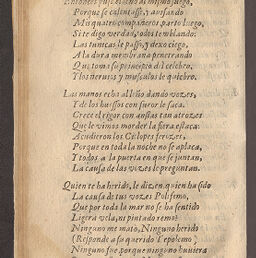 Entonces puse el leño al mismo fuego,
Porque se calentasse, y auisando
Mis quatro compañeros parto luego,
Si te digo verdad, todos temblando:
Las tunicas le passo, y dexo ciego,
A la dura membrana penetrando
Que toma su principio del celebro,
Y los neruios y musculos le quiebro.
Las manos echa al leño dando vozes,
Y de los huessos con furor le saca.
Crece el rigor con ansias tan atrozes
Que le vimos morder la fiera estaca:
Acudieron los Ciclopes ferozes,
Porque en toda la noche no se aplaca,
Y todos a la puerta en que se juntan,
La causa de las vozes le preguntan.
Quien te ha herido, le dizen quien ha sido
La causa de tus vozes Polifemo,
Que por toda la mar no se ha sentido
Ligera vela, ni pintado remo?
Ninguno me mato, Ninguno herido
(Responde a su querido
Ninguno fue, porque ninguno huuiera